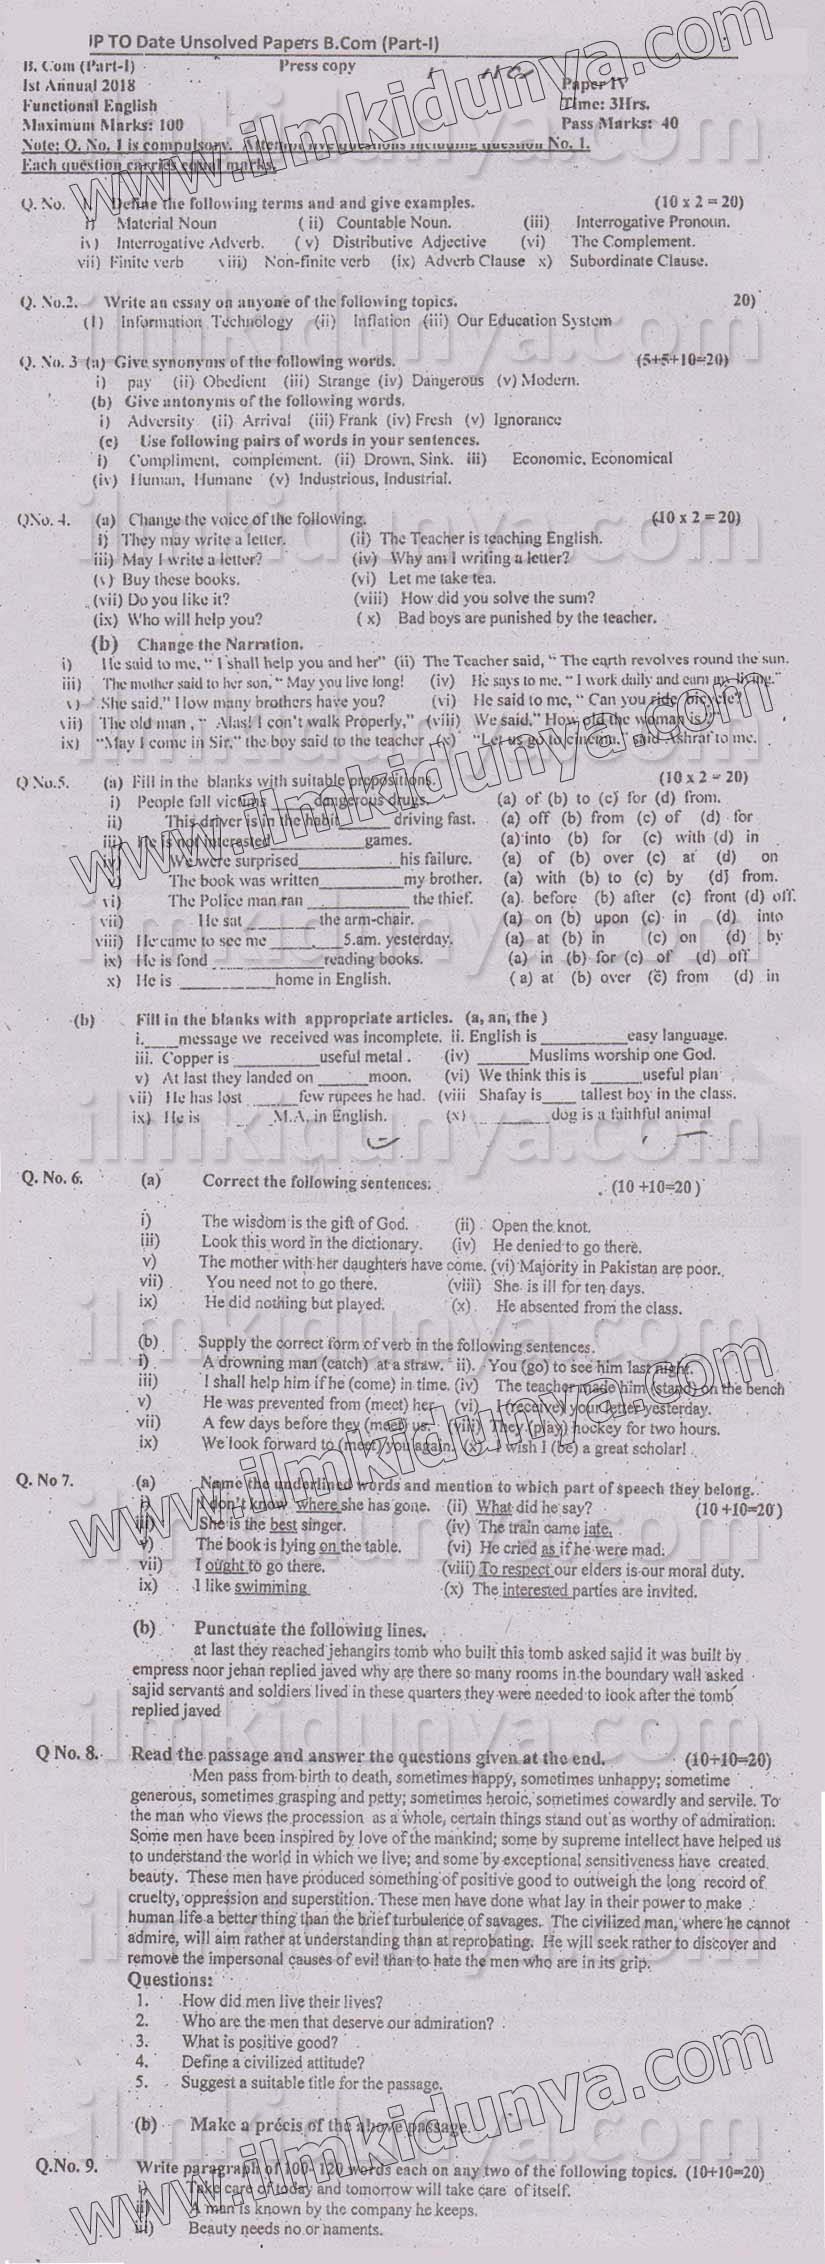 IP TO Date Unsolved Papers B.Com (Part-I)
B. Com (Part-I) Press copy
Ist Annual 2018 Paper IV
Functional English Time: 3Hrs.
Maximum Marks: 100 Pass Marks: 40
Note: Q. No. 1 is compulsory. Attempt five questions including question No. 1.
Each question carries equal marks.
Q. No. 1. Define the following terms and and give examples. (10 x 2 = 20)
i) Material Noun (ii) Countable Noun. (iii) Interrogative Pronoun.
iv) Interrogative Adverb. (v) Distributive Adjective (vi) The Complement.
vii) Finite verb viii) Non-finite verb (ix) Adverb Clause x) Subordinate Clause.
Q. No.2. Write an essay on anyone of the following topics. 20)
(1) Information Technology (ii) Inflation (iii) Our Education System
Q. No. 3 (a) Give synonyms of the following words. (5+5+10=20)
i) pay (ii) Obedient (iii) Strange (iv) Dangerous (v) Modern.
(b) Give antonyms of the following words.
i) Adversity (ii) Arrival (iii) Frank (iv) Fresh (v) Ignorance
(c) Use following pairs of words in your sentences.
i) Compliment, complement. (ii) Drown, Sink. iii) Economic, Economical
(iv) Human, Humane (v) Industrious, Industrial.
QNo. 4. (a) Change the voice of the following. (10 x 2 = 20)
i) They may write a letter. (ii) The Teacher is teaching English.
iii) May I write a letter? (iv) Why am I writing a letter?
(v) Buy these books. (vi) Let me take tea.
(vii) Do you like it? (viii) How did you solve the sum?
(ix) Who will help you? (x) Bad boys are punished by the teacher.
(b) Change the Narration.
i) He said to me, " I shall help you and her" (ii) The Teacher said, " The earth revolves round the sun.
iii) The mother said to her son, " May you live long! (iv) He says to me, " I work daily and earn my living."
v) She said," How many brothers have you? (vi) He said to me, " Can you ride bicycle?
vii) The old man , " Alas! I con't walk Properly," (viii) We said," How old the woman is!"
ix) "May I come in Sir," the boy said to the teacher (x) "Let us go to cinema," said Ashraf to me.
Q No.5. (a) Fill in the blanks with suitable prepositions. (10 x 2 = 20)
i) People fall victims ______ dangerous drugs. (a) of (b) to (c) for (d) from.
ii) This driver is in the habit______ driving fast. (a) off (b) from (c) of (d) for
iii) He is not interested___________games. (a) into (b) for (c) with (d) in
iv) We were surprised____________his failure. (a) of (b) over (c) at (d) on
v) The book was written__________my brother. (a) with (b) to (c) by (d) from.
vi) The Police man ran ____________ the thief. (a) before (b) after (c) front (d) off.
vii) He sat ________ the arm-chair. (a) on (b) upon (c) in (d) into
viii) He came to see me ________5.am. yesterday. (a) at (b) in (c) on (d) by
ix) He is fond ____________reading books. (a) in (b) for (c) of (d) off
x) He is __________home in English. (a) at (b) over (c) from (d) in
(b) Fill in the blanks with appropriate articles. (a, an, the )
i.____message we received was incomplete. ii. English is __________easy language.
iii. Copper is __________useful metal . (iv) ______Muslims worship one God.
v) At last they landed on ______moon. (vi) We think this is ______useful plan
vii) He has lost ______few rupees he had. (viii Shafay is____ tallest boy in the class.
ix) He is ____M.A. in English. (x) _________dog is a faithful animal
Q. No. 6. (a) Correct the following sentences. (10 +10=20 )
i) The wisdom is the gift of God. (ii) Open the knot.
iii) Look this word in the dictionary. (iv) He denied to go there.
v) The mother with her daughters have come. (vi) Majority in Pakistan are poor.
vii) You need not to go there. (viii) She is ill for ten days.
ix) He did nothing but played. (x) He absented from the class.
(b) Supply the correct form of verb in the following sentences.
i) A drowning man (catch) at a straw. ii). You (go) to see him last night.
iii) I shall help him if he (come) in time. (iv) The teacher made him (stand) on the bench
v) He was prevented from (meet) her (vi) I (receive) your letter yesterday.
vii) A few days before they (meet) us. (viii) They (play) hockey for two hours.
ix) We look forward to (meet) you again. (x) I wish I (be) a great scholar!
Q. No 7. (a) Name the underlined words and mention to which part of speech they belong.
i) I don't know where she has gone. (ii) What did he say? (10 +10=20 )
iii) She is the best singer. (iv) The train came late.
v) The book is lying on the table. (vi) He cried as if he were mad.
vii) I ought to go there. (viii) To respect our elders is our moral duty.
ix) I like swimming (x) The interested parties are invited.
(b) Punctuate the following lines.
at last they reached jehangirs tomb who built this tomb asked sajid it was built by
empress noor jehan replied javed why are there so many rooms in the boundary wall asked
sajid servants and soldiers lived in these quarters they were needed to look after the tomb
replied javed
Q No. 8. Read the passage and answer the questions given at the end. (10+10=20)
Men pass from birth to death, sometimes happy, sometimes unhappy; sometime
generous, sometimes grasping and petty; sometimes heroic, sometimes cowardly and servile. To
the man who views the procession as a whole, certain things stand out as worthy of admiration.
Some men have been inspired by love of the mankind; some by supreme intellect have helped us
to understand the world in which we live; and some by exceptional sensitiveness have created
beauty. These men have produced something of positive good to outweigh the long record of
cruelty, oppression and superstition. These men have done what lay in their power to make
human life a better thing than the brief turbulence of savages. The civilized man, where he cannot
admire, will aim rather at understanding than at reprobating. He will seek rather to discover and
remove the impersonal causes of evil than to hate the men who are in its grip.
Questions:
1. How did men live their lives?
2. Who are the men that deserve our admiration?
3. What is positive good?
4. Define a civilized attitude?
5. Suggest a suitable title for the passage.
(b) Make a précis of the above passage.
Q.No. 9. Write paragraph of 100- 120 words each on any two of the following topics. (10+10=20)
i) Take care of today and tomorrow will take care of itself.
ii) A man is known by the company he keeps.
iii) Beauty needs no or naments.
www.ilmkidunya.com
www.ilmkidunya.com
www.ilmkidunya.com
www.ilmkidunya.com